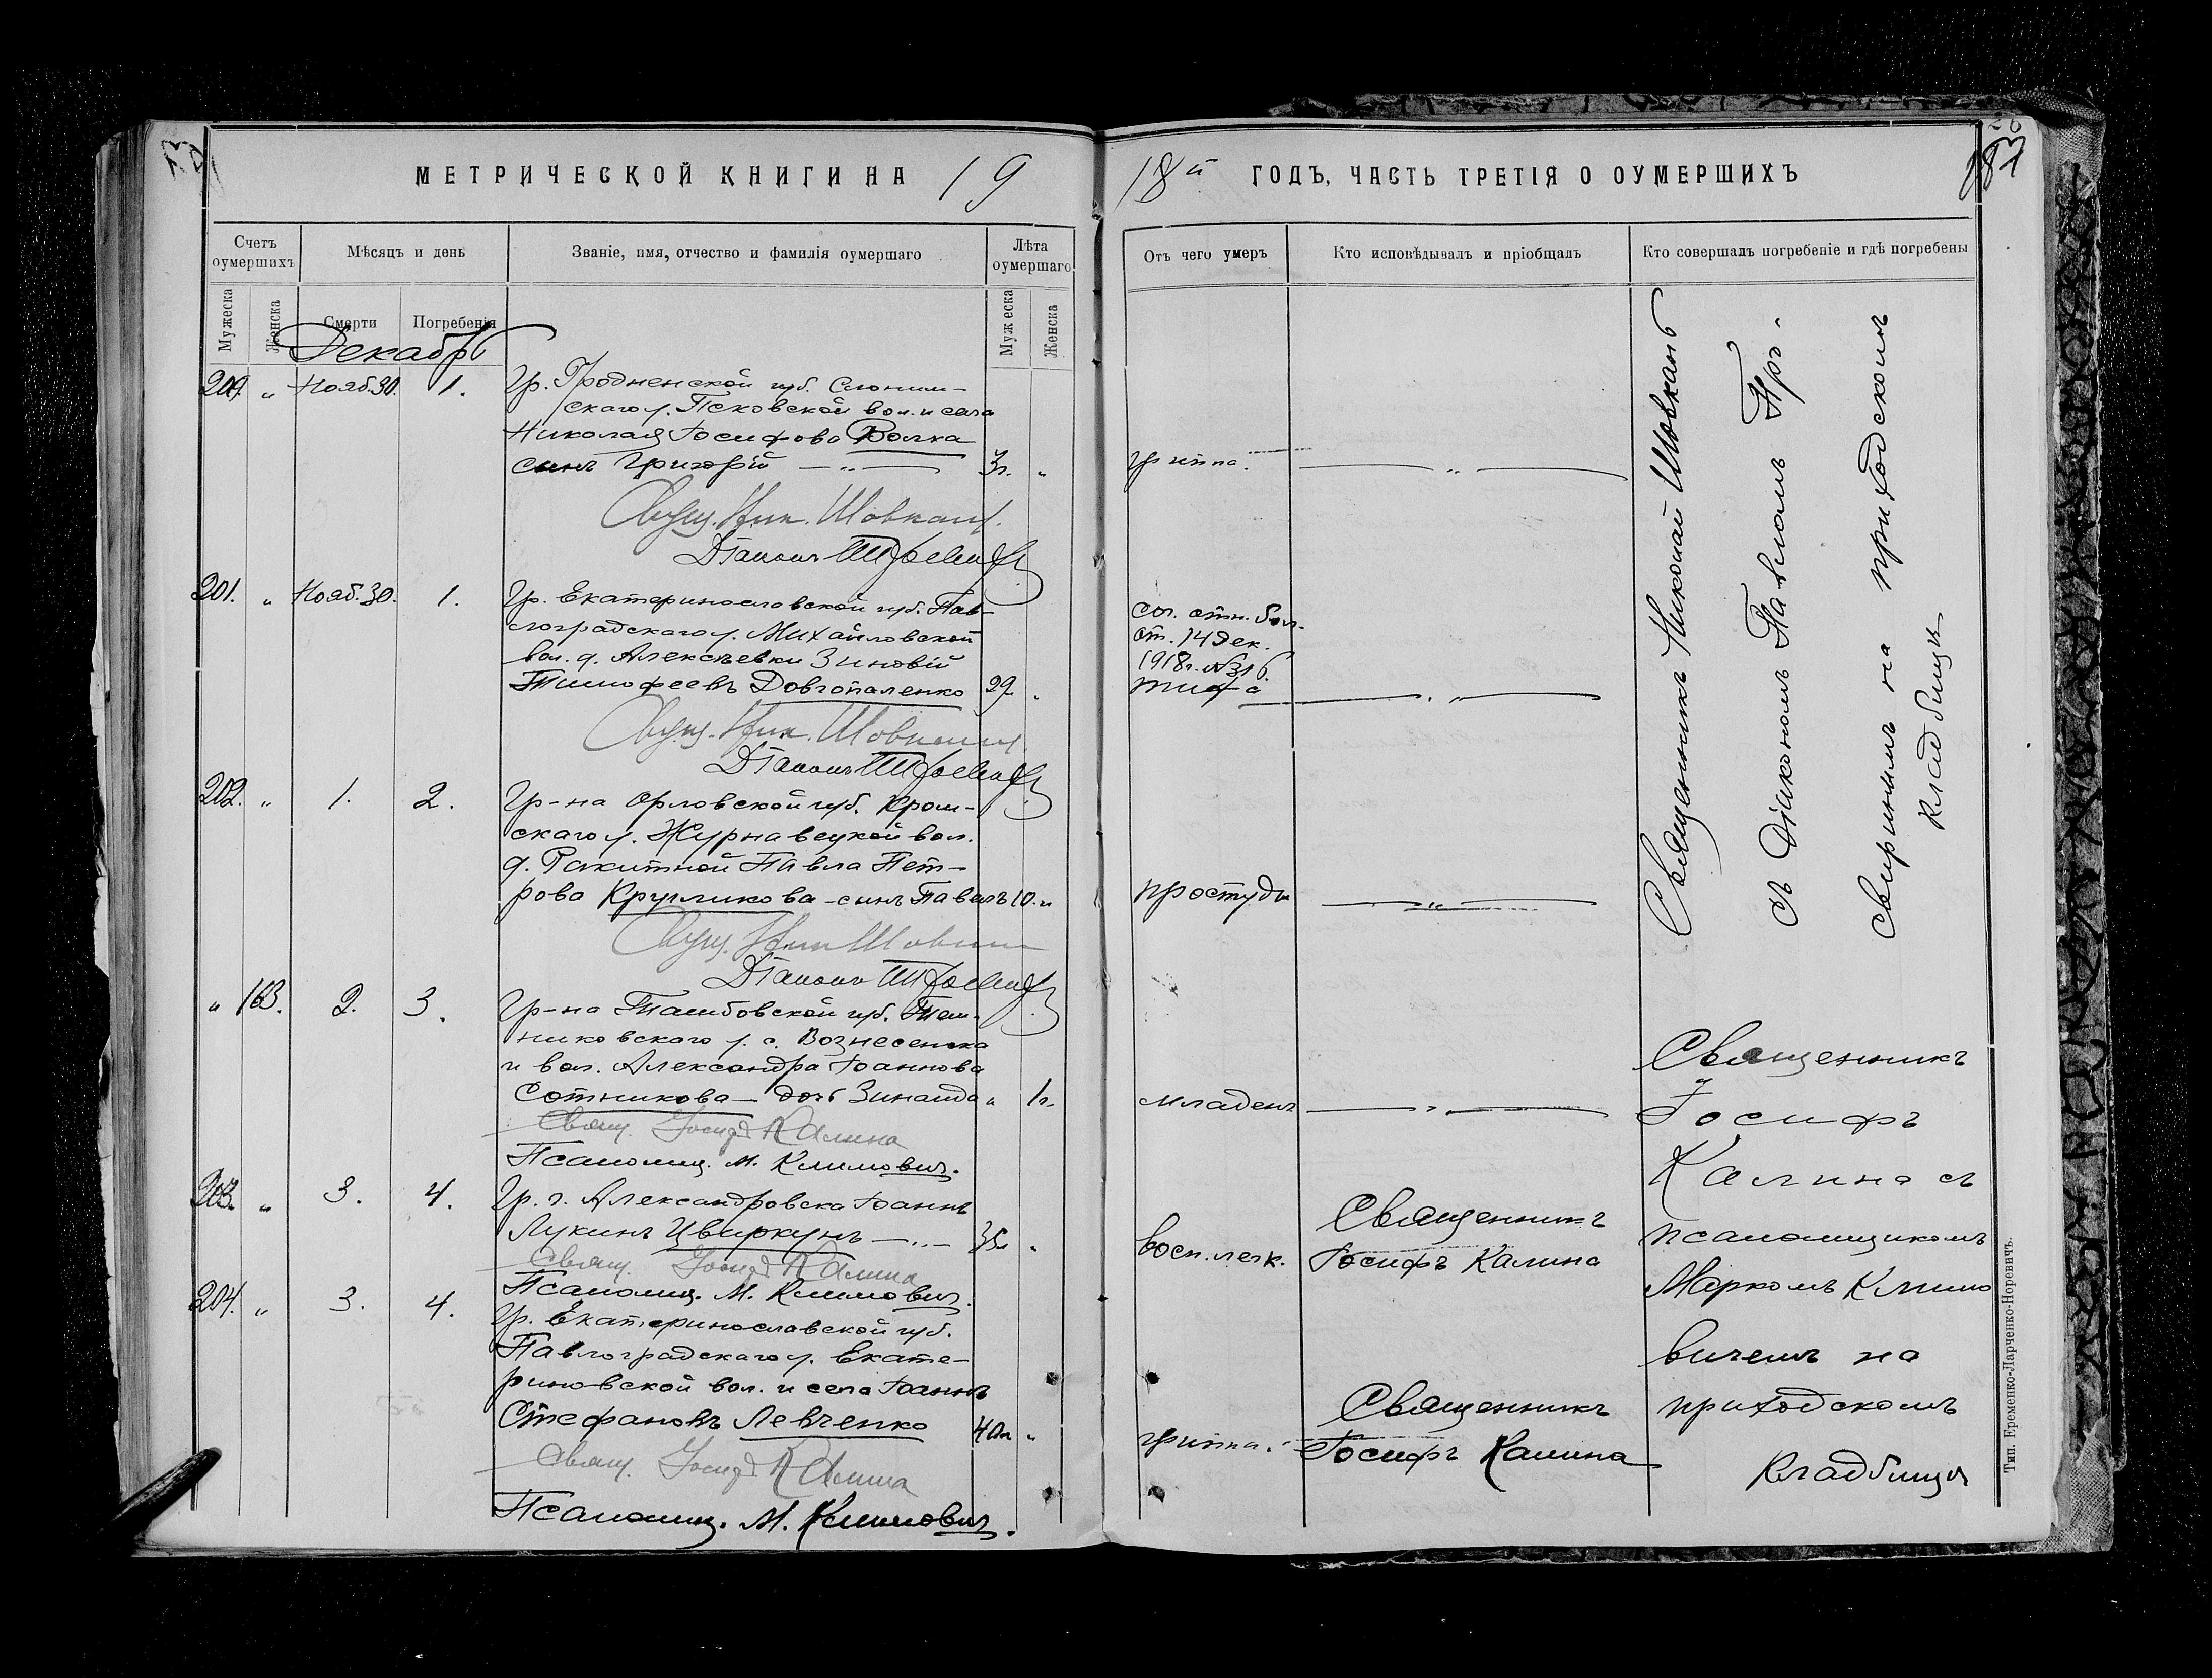 МЕТРИЧЕСКОЙ КНИГИ НА 19
18й ГОДЪ, ЧАСТЬ ТРЕТІЯ О ОУМЕРШИХЪ
287
Счетъ оумершихъ
Мѣсяцъ и день
Званіе, имя, отчество и фамилія оумершаго
Лѣта оумершаго
Отъ чего умеръ
Кто исповѣдывалъ и пріобщалъ
Кто совершалъ погребеніе и гдѣ погребены
Мужеска
Женска
Смерти
Погребенія
Мужеска
Женска
Декабрь
200. „ Нояб. 30. 1. Гр. Гродненской губ. Слоним-
скаго у. Псковской вол. и села
Николая Іосифова Волка
сынъ Григорій — „ — 3г. „ гриппа. — „ —
Свящ. Ник. Шовкань.
Діаконъ
201. „ Нояб. 30. 1. Гр. Екатеринославской губ. Пав-
лоградскаго у. Михайловской
вол. д. Алексѣевки Зиновій
Тимофеевъ Довгопаленко 29. „
Сог. отн. бол.
от. 14 Дек.
1918г. №316.
тифа — „ —
Свящ. Ник. Шовкань.
Діаконъ
202. „ 1. 2. Гр-на Орловской губ. Кром-
скаго у. Журнавецкой вол.
д. Ракитной Павла Пет-
рова Кругликова - сынъ Павелъ 10. „ простуды — „ —
Свящ. Ник. Шовкань
Діаконъ
Священникъ Николай Шовкань
съ Діакономъ Павломъ Тро-
Свиринымъ на приходскомъ
кладбищѣ
„ 163. 2. 3. Гр-на Тамбовской губ. Тем-
никовскаго у. с. Вознесенска
и вол. Александра Іоаннова
Сотникова — дочь Зинаида „ 1г. младенч. — „ —
Свящ. Іосифъ Калина
Псаломщ. М. Климович.
203. „ 3. 4. Гр. г. Александровска Іоаннъ
Лукинъ Цвиркунъ — „ — 35л. „ восп. легк.
Священникъ
Іосифъ Калина
Свящ. Іосифъ Калина
Псаломщ. М. Климович.
204. „ 3. 4. Гр. Екатеринославской губ.
Павлоградскаго у. Екате-
риновской вол. и села Іоаннъ
Стефановъ Левченко 40л. „ гриппа.
Священникъ
Іосифъ Калина
Свящ. Іосифъ Калина
Псаломщ. М. Климович.
Священникъ
Іосифъ
Калина съ
псаломщикомъ
Маркомъ Климо
вичемъ на
приходскомъ
кладбищѣ
Тип. Еременко-Ларченко-Норевичъ.